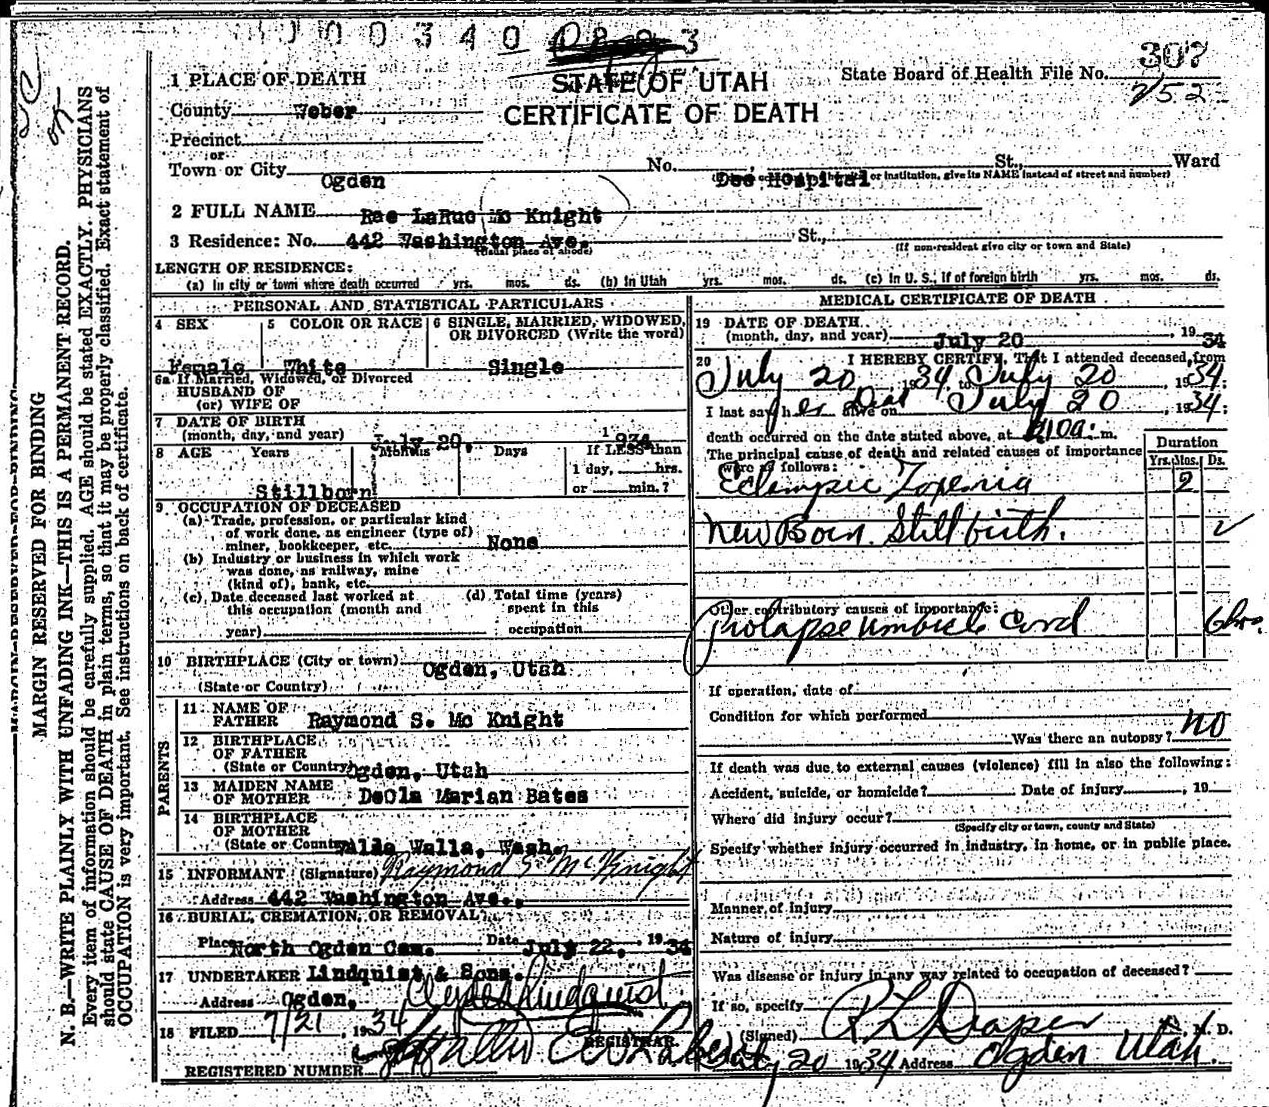 0 0 3 4 0
3
1 PLACE OF DEATH
STATE OF UTAH
CERTIFICATE OF DEATH
State Board of Health File No. 307
752
County Weber
Precinct
or
Town or City Ogden No. Dee Hospital St., Ward
or institution, give its NAME instead of street and number)
2 FULL NAME Rae LaRue Mc Knight
3 Residence: No. 442 Washington Ave. St.,
(Usual place of abode) (If non-resident give city or town and State)
LENGTH OF RESIDENCE:
(a) In city or town where death occurred yrs. mos. ds. (b) in Utah yrs. mos. ds. (c) in U. S., if of foreign birth yrs. mos. ds.
PERSONAL AND STATISTICAL PARTICULARS
4 SEX Female
5 COLOR OR RACE White
6 SINGLE, MARRIED, WIDOWED,
OR DIVORCED (Write the word)
Single
6a If Married, Widowed, or Divorced
HUSBAND OF
(or) WIFE OF
7 DATE OF BIRTH
(month, day, and year) July 20, 1934
8 AGE Years Months Days If LESS than
1 day, hrs.
or min.?
Stillborn
9 OCCUPATION OF DECEASED
(a) Trade, profession, or particular kind
of work done, as engineer (type of)
miner, bookkeeper, etc. None
(b) Industry or business in which work
was done, as railway, mine
(kind of), bank, etc.
(c) Date deceased last worked at
this occupation (month and
year)
(d) Total time (years)
spent in this
occupation
10 BIRTHPLACE (City or town) Ogden, Utah
(State or Country)
PARENTS
11 NAME OF
FATHER Raymond S. Mc Knight
12 BIRTHPLACE
OF FATHER
(State or Country) Ogden, Utah
13 MAIDEN NAME
OF MOTHER DeOla Marian Bates
14 BIRTHPLACE
OF MOTHER
(State or Country) Walla Walla, Wash.
15 INFORMANT (Signature) Raymond S. McKnight
Address 442 Washington Ave.,
16 BURIAL, CREMATION, OR REMOVAL
Place North Ogden Cem. Date July 22, 1934
17 UNDERTAKER Lindquist & Sons.
Address Ogden, Clyde Lindquist
18 FILED 7/21, 1934
REGISTRAR.
REGISTERED NUMBER
MEDICAL CERTIFICATE OF DEATH
19 DATE OF DEATH
(month, day, and year) July 20, 1934
20 I HEREBY CERTIFY, That I attended deceased from
July 20, 1934, to July 20, 1934;
I last saw her alive on July 20, 1934;
Dead
death occurred on the date stated above, at m.
The principal cause of death and related causes of importance
were as follows:
Duration
Yrs. Mos. Ds.
Eclampsic Toxemia 2
New Born. Stillbirth.
Other contributory causes of importance:
Prolapse umbicle Cord 6 hrs.
If operation, date of
Condition for which performed
Was there an autopsy? no
If death was due to external causes (violence) fill in also the following:
Accident, suicide, or homicide? Date of injury, 19
Where did injury occur?
(Specify city or town, county and State)
Specify whether injury occurred in industry, in home, or in public place.
Manner of injury
Nature of injury
Was disease or injury in any way related to occupation of deceased?
If so, specify
(Signed) R L Draper M. D.
July 20 1934 Address Ogden Utah.
MARGIN RESERVED FOR BINDING
MARGIN RESERVED FOR BINDING
N. B.—WRITE PLAINLY WITH UNFADING INK—THIS IS A PERMANENT RECORD.
Every item of information should be carefully supplied. AGE should be stated EXACTLY. PHYSICIANS
should state CAUSE OF DEATH in plain terms, so that it may be properly classified. Exact statement of
OCCUPATION is very important. See instructions on back of certificate.